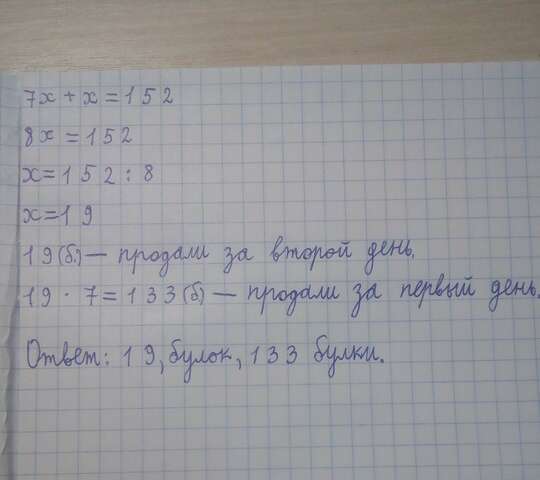 7x + x = 152
8x = 152
x = 152 : 8
x = 19
19 (б.) — продали за второй день.
19 · 7 = 133 (б) — продали за первый день.
Ответ: 19, булок, 133 булки.